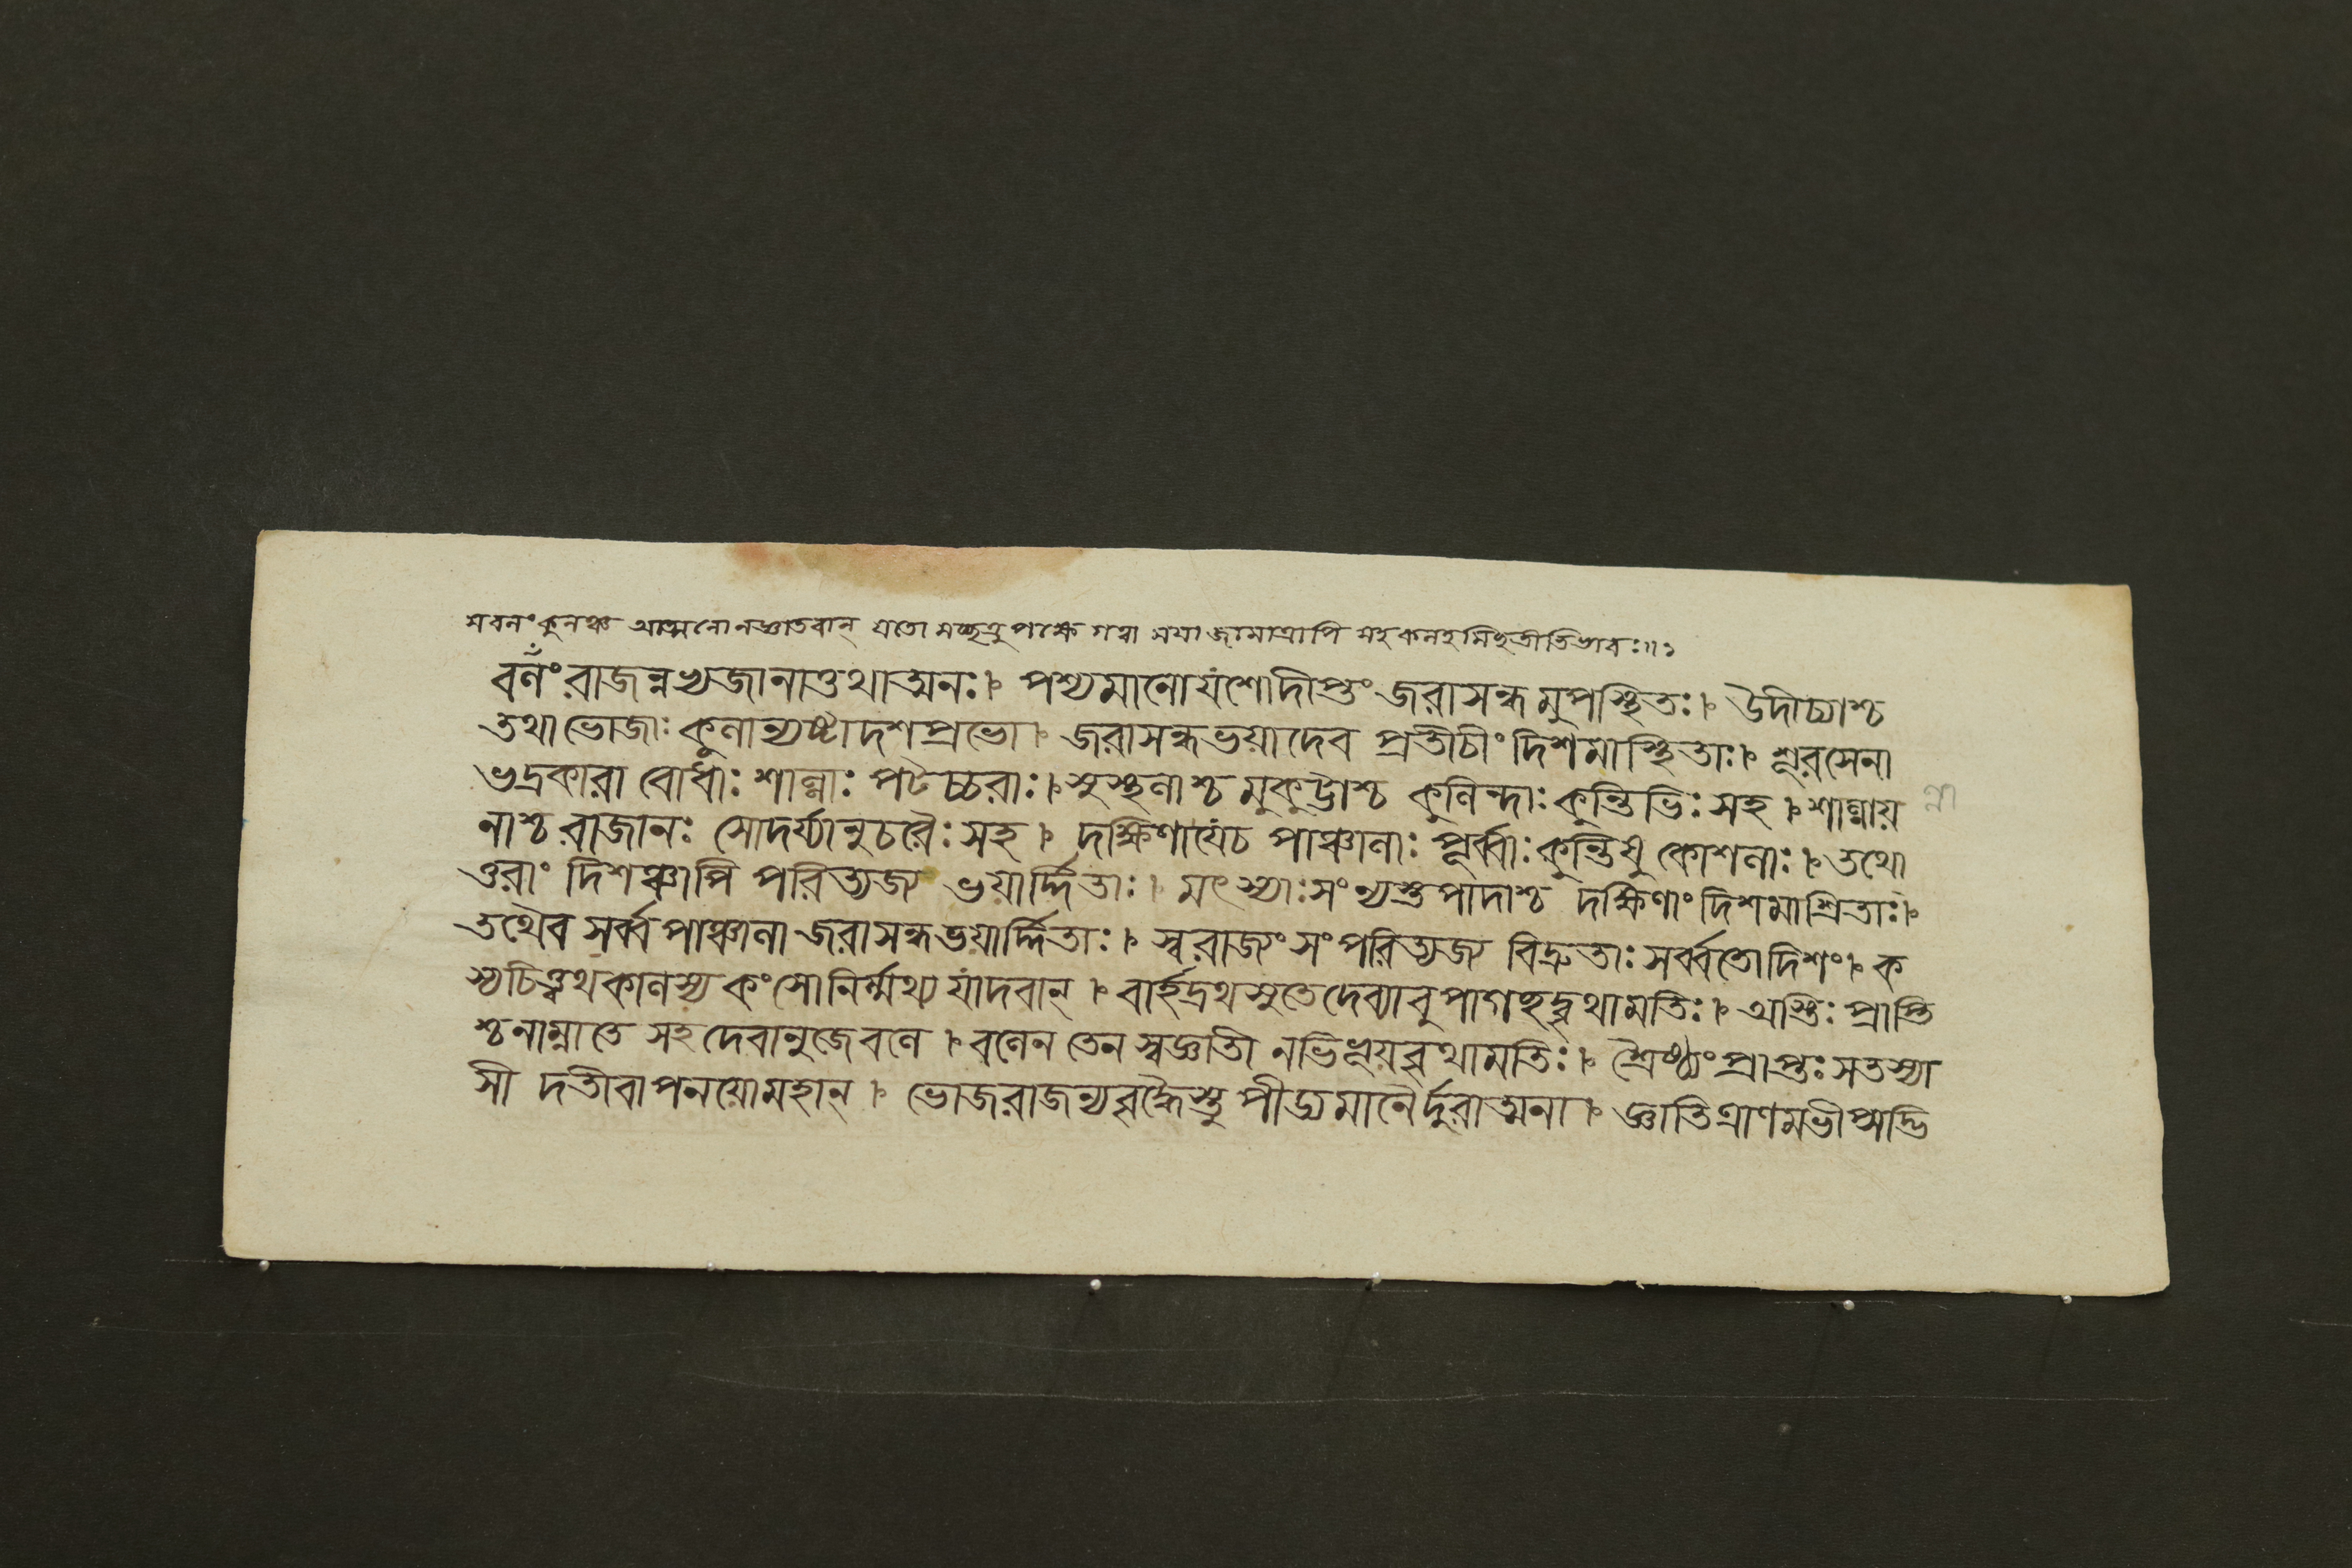 স বলং কুলঞ্চ আত্মনো নজ্ঞাতবান্ যতো মচ্ছত্রু পক্ষে গত্বা ময়া জামাত্রাপি সহ কলহমিচ্ছতীতিভাবঃ॥১
বলং রাজন্নখ্যজানাত্তথাত্মনঃ। পশ্যমানোযশোদীপ্তং জরাসন্ধমুপস্থিতঃ। উদীচ্যাশ্চ
তথাভোজাঃ কুলান্যষ্টাদশপ্রভো। জরাসন্ধভয়াদেব প্রতীচীং দিশমাস্থিতাঃ। শূরসেনা
ভদ্রকারা বোধাঃ শাল্বাঃ পটচ্চরাঃ। সুস্থলাশ্চ মুকুট্টাশ্চ কুলিন্দাঃ কুন্তিভিঃ সহ। শাল্বায়
লাশ্চ রাজানঃ সোদর্য্যানুচরৈঃ সহ। দক্ষিণাযেচ পাঞ্চালাঃ পূর্ব্বাঃ কুন্তিষু কোশলাঃ। তথো
ত্তরাং দিশঞ্চাপি পরিত্যজ্য ভয়ার্দ্দিতাঃ। মৎস্যাঃ সংন্যস্তপাদাশ্চ দক্ষিণাং দিশমাশ্রিতাঃ।
তথৈব সর্ব্বপাঞ্চালা জরাসন্ধভয়ার্দ্দিতাঃ। স্বরাজ্যং সংপরিত্যজ্য বিদ্রুতাঃ সর্ব্বতোদিশং। ক
স্যচিত্ত্বথকালস্য কংসোনির্ম্মথ্য যাদবান্। বার্হদ্রথসুতেদেব্যাবুপাগচ্ছদ্বৃথামতিঃ। অস্তিঃ প্রাপ্তি
শ্চনাম্নাতে সহদেবানুজেবলে। বলেন তেন স্বজ্ঞাতী নভিভূয়বৃথামতিঃ। শ্রৈষ্ঠ্যং প্রাপ্তঃ সতস্যা
সী দতীবাপনয়োমহান্। ভোজরাজন্যবৃদ্ধৈস্তু পীড্যমানৈর্দুরাত্মনা। জ্ঞাতিত্রাণমভীপ্সদ্ভি